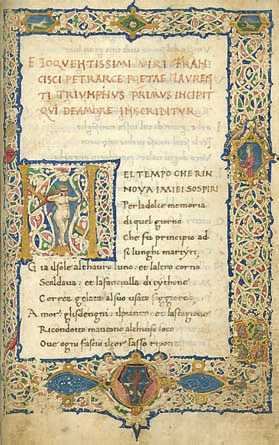 ELOQVENTISSIMI VIRI FRAN
CISCI PETRARCE POETAE LAVREN
TI TRIVMPHVS PRIMVS INCIPIT
QVI DE AMORE INSCRIBITVR
N
EL TEMPO CHE RIN
NOVA I MIEI SOSPIRI
Per la dolce memoria
di quel giorno
Che fu principio ad
si lunghi martyri,
Gia il sole al thauro luno et laltro corno
Scaldaua: et la fanciulla di tythone
Correa gelata al suo usato
Amor gli sdegni: il pianto et la stagione
Ricondotto maueano al chiuso loco
Oue ogni fascio il cor lasso ripone